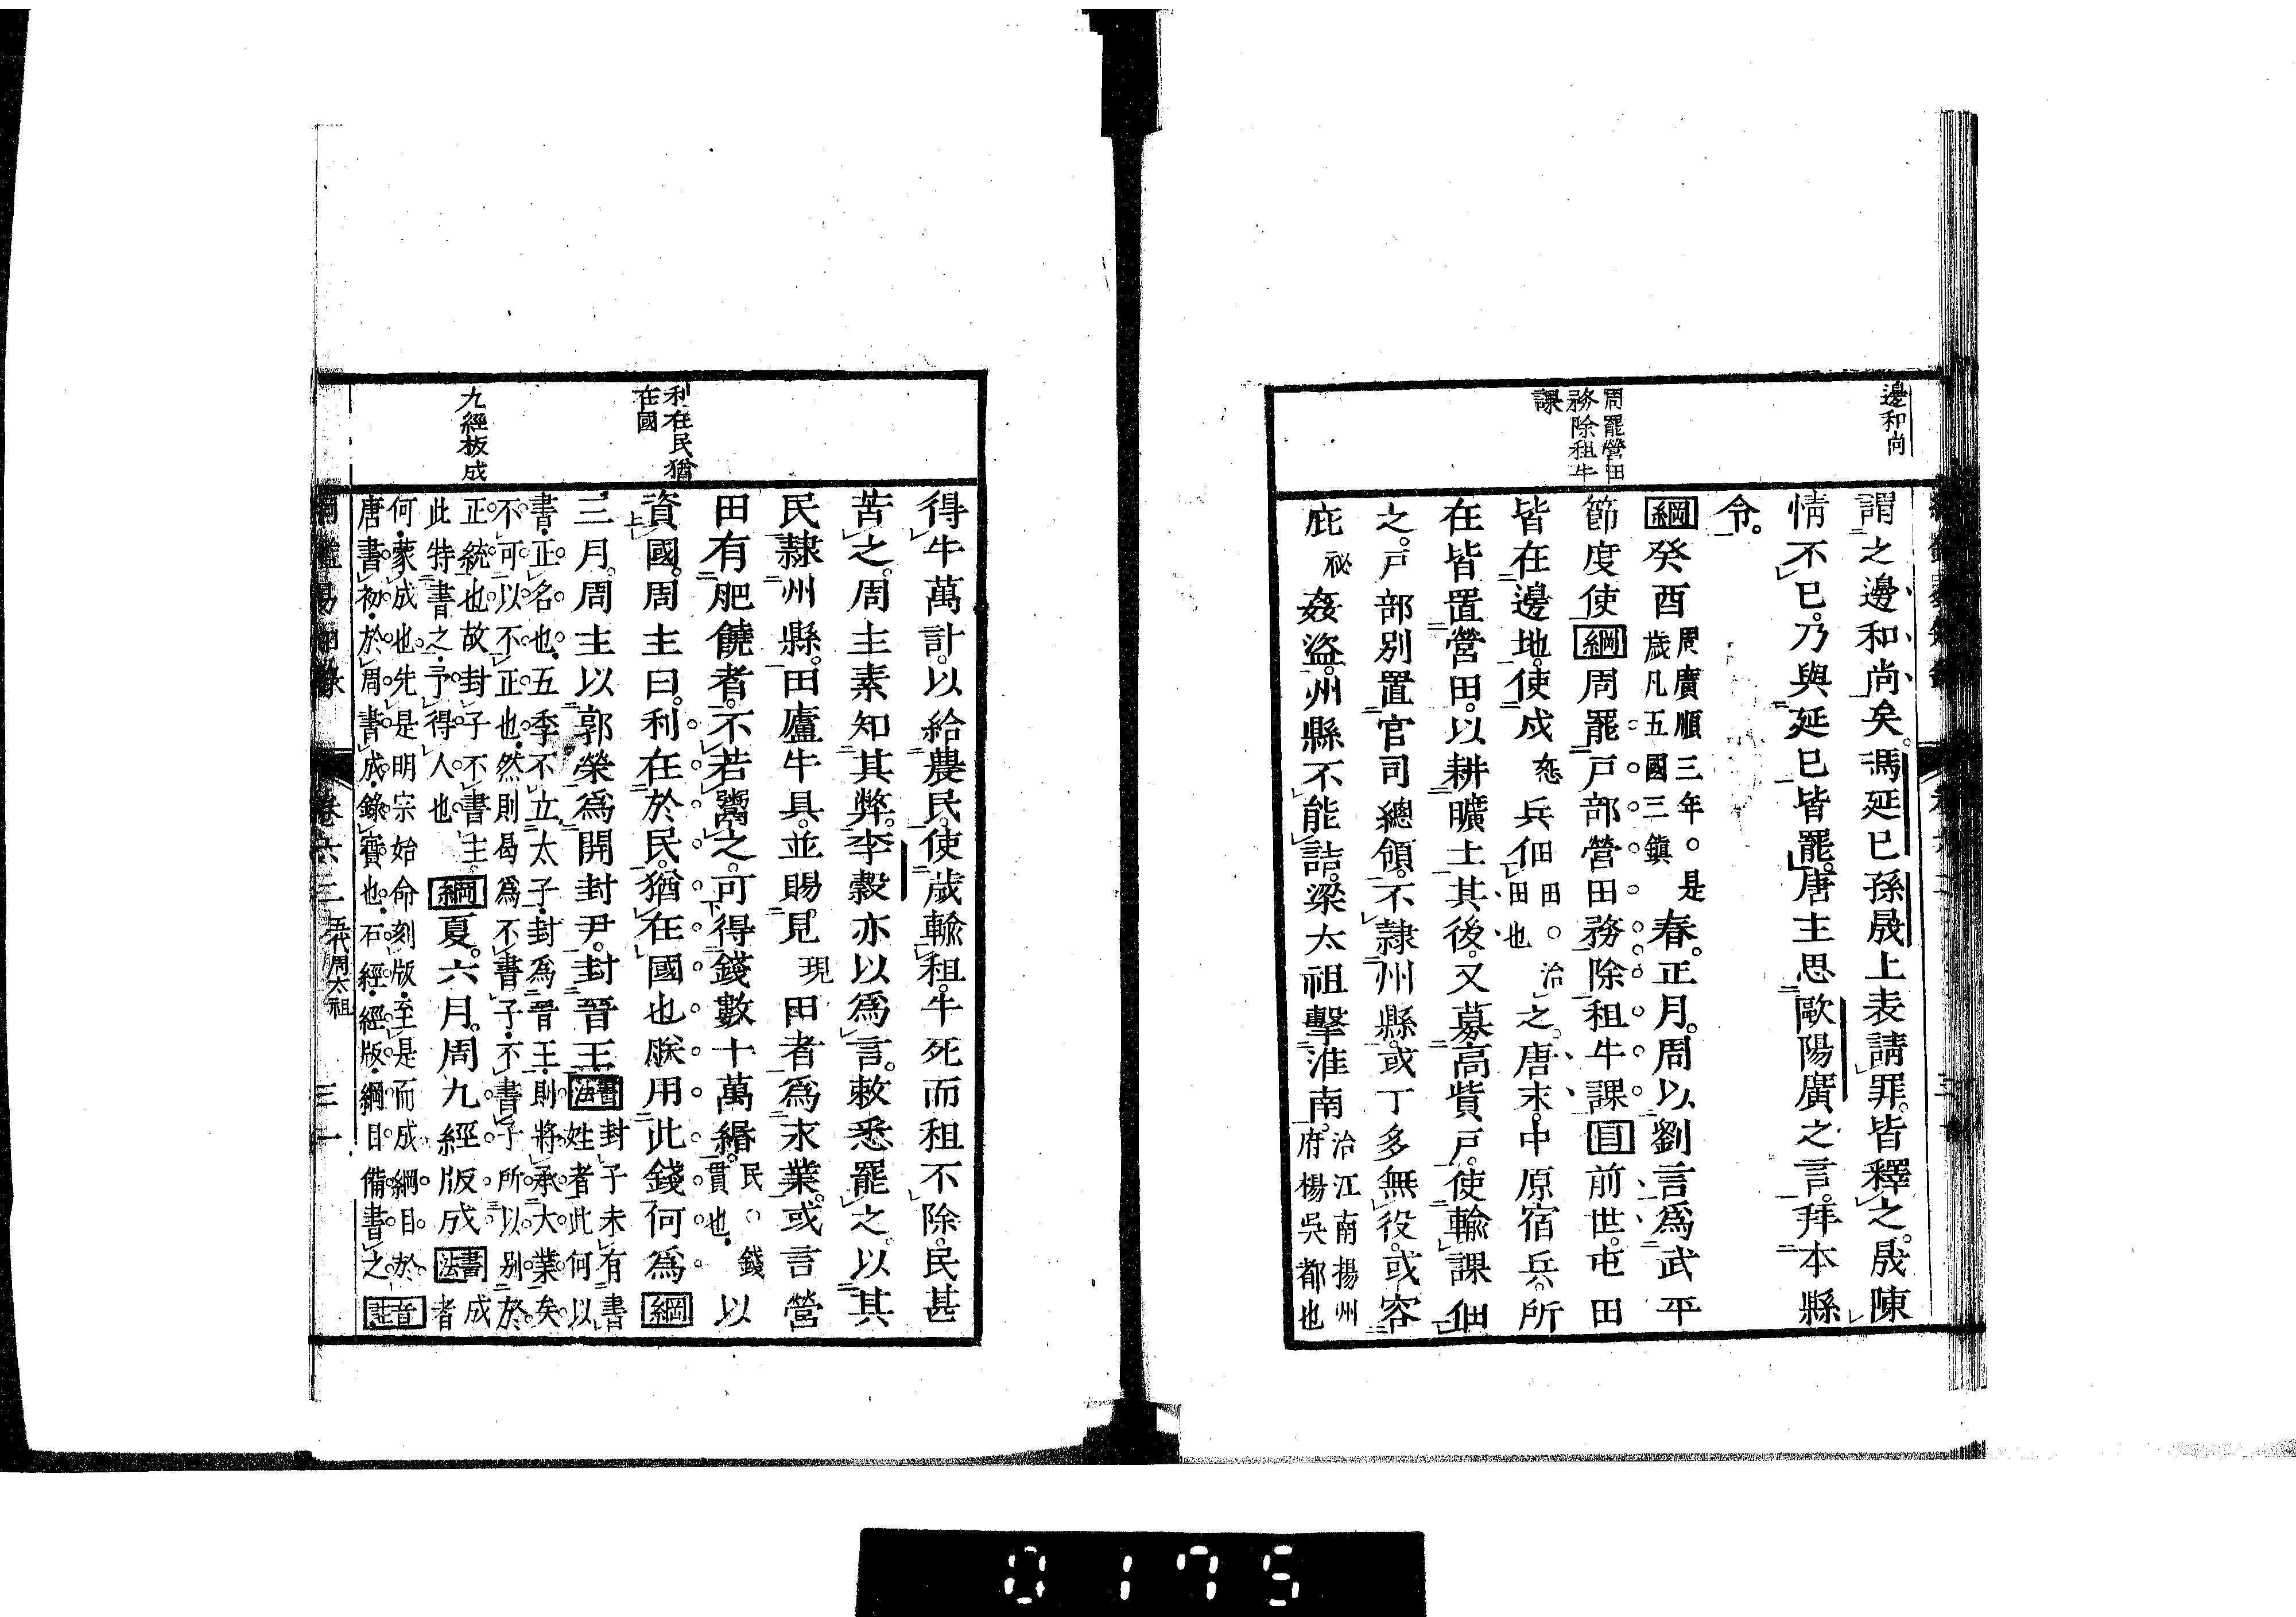 邊和尚
謂之邊和尚矣。馮延巳孫晟上表請罪。皆釋之。晟陳
情不已。乃與延巳皆罷。唐主思歐陽廣之言。拜本縣
令。
周罷營田
務除租牛
課
綱癸酉周廣順三年。○是歲凡五國三鎮春。正月。周以劉言爲武平
節度使綱周罷戸部營田務除租牛課目前世。屯田
皆在邊地。使戍兵佃田○治田也之。唐末。中原宿兵。所
在皆置營田。以耕曠土其後。又募高貲戸。使輸課佃
之。戸部別置官司總領。不隷州縣。或丁多無役。或容
庇祕姦盜。州縣不能詰。梁太祖擊淮南。治江南揚州府楊吳都也
得牛萬計。以給農民。使歲輸租。牛死而租不除。民甚
苦之。周主素知其弊。李穀亦以爲言。敕悉罷之。以其
民隷州縣。田廬牛具。並賜見現田者爲永業。或言營
田有肥饒者。不若鬻之。可得錢數十萬緡。民○錢貫也。以
利在民猶
在國
資國。周主曰。利在於民。猶在國也朕用此錢何爲綱
三月。周主以郭榮爲開封尹。封晉王書法封子未有書姓者此何以
書。正名也。五季不立太子。封爲晉王。則將承大業矣
不可以不正也。然則曷爲不書子。不書子所以別於
正統也故封子不書主。
此特書之。予得人也綱夏。六月。周九經版成書法成者
九經板成
何。蒙成也。先是明宗始命刻版。至是而成綱目於
唐書初。於周書成。錄實也。石經。經版。綱目備書之音註
綱鑑易知錄 卷六二 五代周太祖 三一